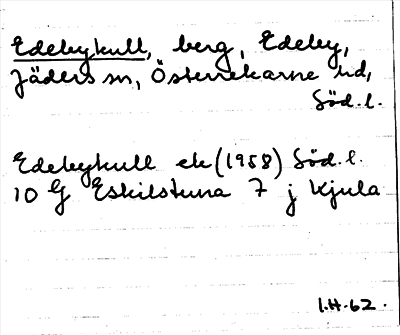 Edebykull, berg, Edeby,
Jäders sn, Österrekarne hd,
Söd. l.
Edebykull ek (1958) Söd. l.
10 G Eskilstuna 7 j Kjula
I.H-62.